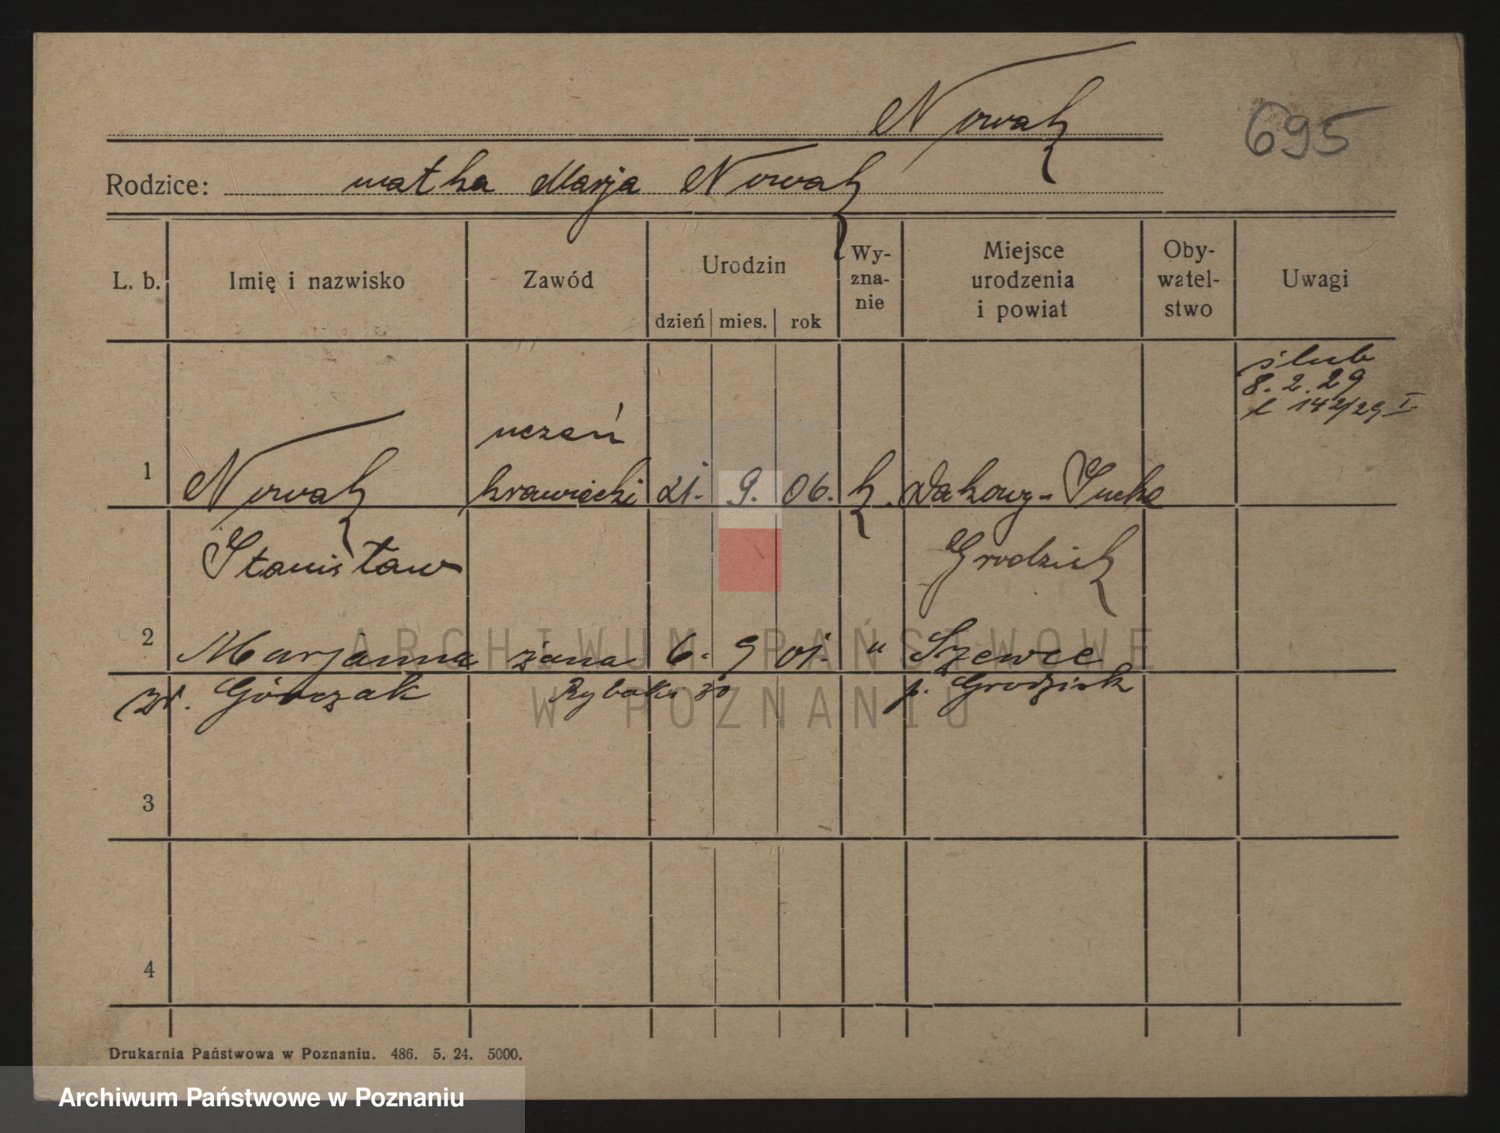 Nowak
695
Rodzice: matka Marja Nowak
L. b. Imię i nazwisko Zawód Urodzin dzień mies. rok Wy-zna-nie Miejsce urodzenia i powiat Oby-watel-stwo Uwagi
ślub
8. 2. 29
142/29 I
uczeń
1 Nowak krawiecki 21. 9. 06. k. Dakowy-Suche
Stanisław Grodzisk
2 Marjanna żona 6. 9 01. " Szewce
zd. Górczak Rybaki 30 p. Grodzisk
3
4
ARCHIWUM PAŃSTWOWE
W POZNANIU
Drukarnia Państwowa w Poznaniu. 486. 5. 24. 5000.
Archiwum Państwowe w Poznaniu